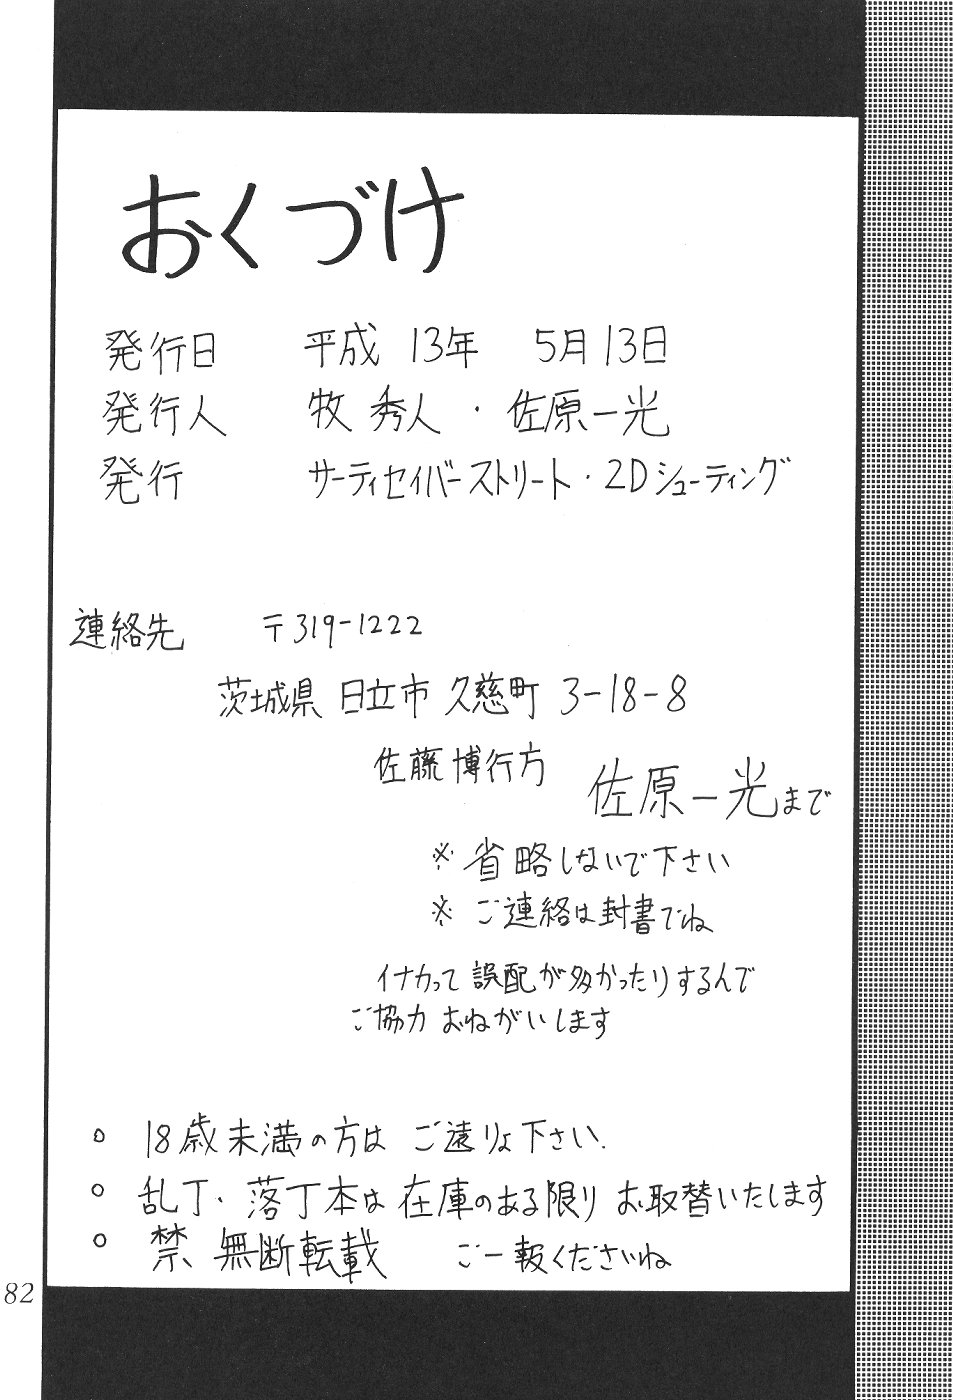 おくづけ
発行日 平成 13年 5月13日
発行人 牧 秀人・佐原一光
発行 サーティセイバーストリート・2Dシューティング
連絡先 〒319-1222
茨城県 日立市 久慈町 3-18-8
佐藤 博行方 佐原一光まで
※ 省略しないで下さい
※ ご連絡は封書でね
イナカって 誤配が多かったりするんで
ご協力 おねがいします
○ 18歳未満の方は ご遠りょ下さい.
○ 乱丁・落丁本は 在庫のある限り お取替いたします
○ 禁 無断転載 ご一報くださいね
82